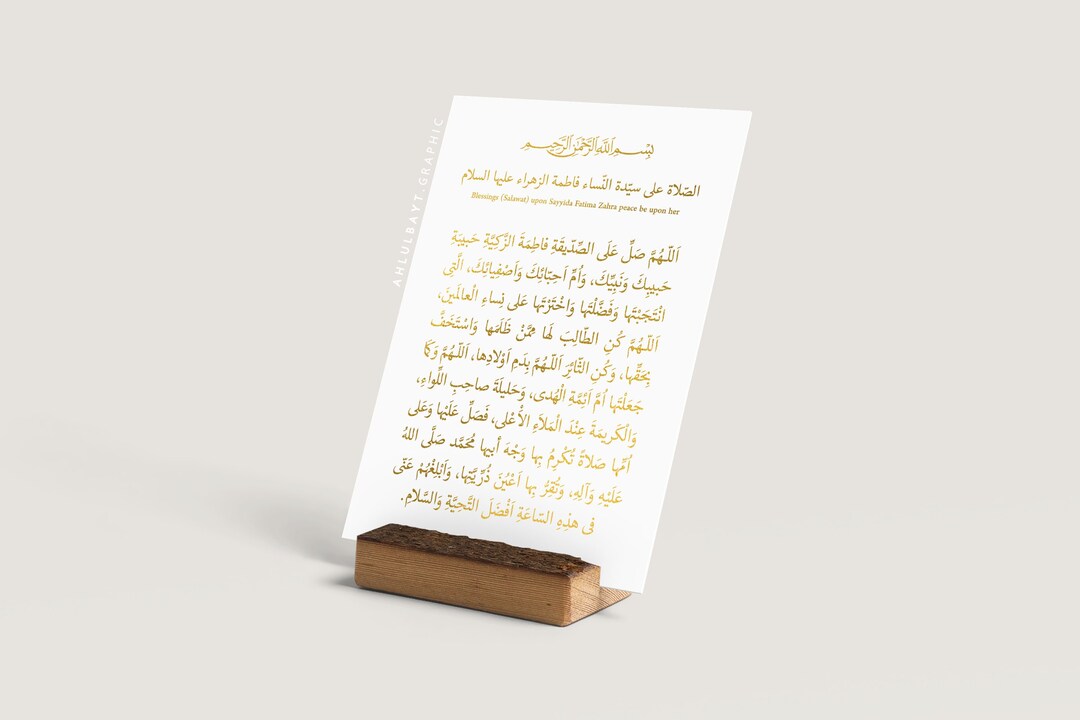 بِسْمِ اللَّهِ الرَّحْمَٰنِ الرَّحِيمِ
الصّلاة على سيّدة النّساء فاطمة الزهراء عليها السلام
Blessings (Salawat) upon Sayyida Fatima Zahra peace be upon her
اَللّـهُمَّ صَلِّ عَلَى الصِّدّيقَةِ فاطِمَةَ الزَّكِيَّةِ حَبيبَةِ
حَبيبِكَ وَنَبِيِّكَ، وَاُمِّ اَحِبّائِكَ وَاَصْفِيائِكَ، الَّتِى
انْتَجَبْتَها وَفَضَّلْتَها وَاخْتَرْتَها عَلى نِساءِ الْعالَمينَ،
اَللّـهُمَّ كُنِ الطّالِبَ لَها مِمَّنْ ظَلَمَها وَاسْتَخَفَّ
بِحَقِّها، وَكُنِ الثّائِرَ اَللّـهُمَّ بِدَمِ اَوْلادِها، اَللّـهُمَّ وَكَما
جَعَلْتَها اُمَّ اَئِمَّةِ الْهُدى، وَحَليلَةَ صاحِبِ اللِّواءِ،
وَالْكَريمَةَ عِنْدَ الْمَلاَءِ الأَعْلى، فَصَلِّ عَلَيْها وَعَلى
اُمِّها صَلاةً تُكْرِمُ بِها وَجْهَ أبيها مُحَمَّد صَلَّى اللهُ
عَلَيْهِ وَآلِهِ، وَتُقِرُّ بِها اَعْيُنَ ذُرِّيَّتِها، وَاَبْلِغْهُمْ عَنّى
فى هذِهِ السّاعَةِ اَفْضَلَ التَّحِيَّةِ وَالسَّلامِ.
AHLULBAYT.GRAPHIC